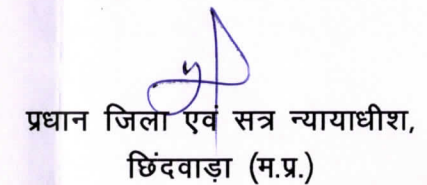 प्रधान जिला एवं सत्र न्यायाधीश,
छिंदवाड़ा (म.प्र.)